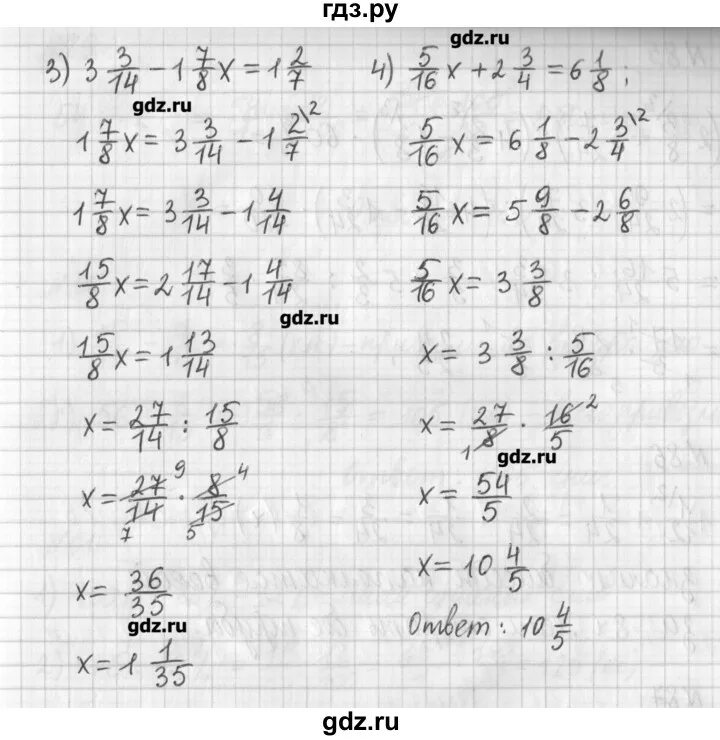 гдз.ру
3) 3 3/14 - 1 7/8 x = 1 2/7
gdz.ru
1 7/8 x = 3 3/14 - 1 2\2/7
1 7/8 x = 3 3/14 - 1 4/14
15/8 x = 2 17/14 - 1 4/14
gdz.ru
15/8 x = 1 13/14
x = 27/14 : 15/8
x = 27/14 · 8/15 9 4 7 5
x = 36/35
gdz.ru
x = 1 1/35
gdz.ru
4) 5/16 x + 2 3/4 = 6 1/8 ;
5/16 x = 6 1/8 - 2 3\2/4
5/16 x = 5 9/8 - 2 6/8
5/16 x = 3 3/8
x = 3 3/8 : 5/16
x = 27/8 · 16/5 1 2
gdz.ru
x = 54/5
x = 10 4/5
Ответ: 10 4/5
gdz.ru